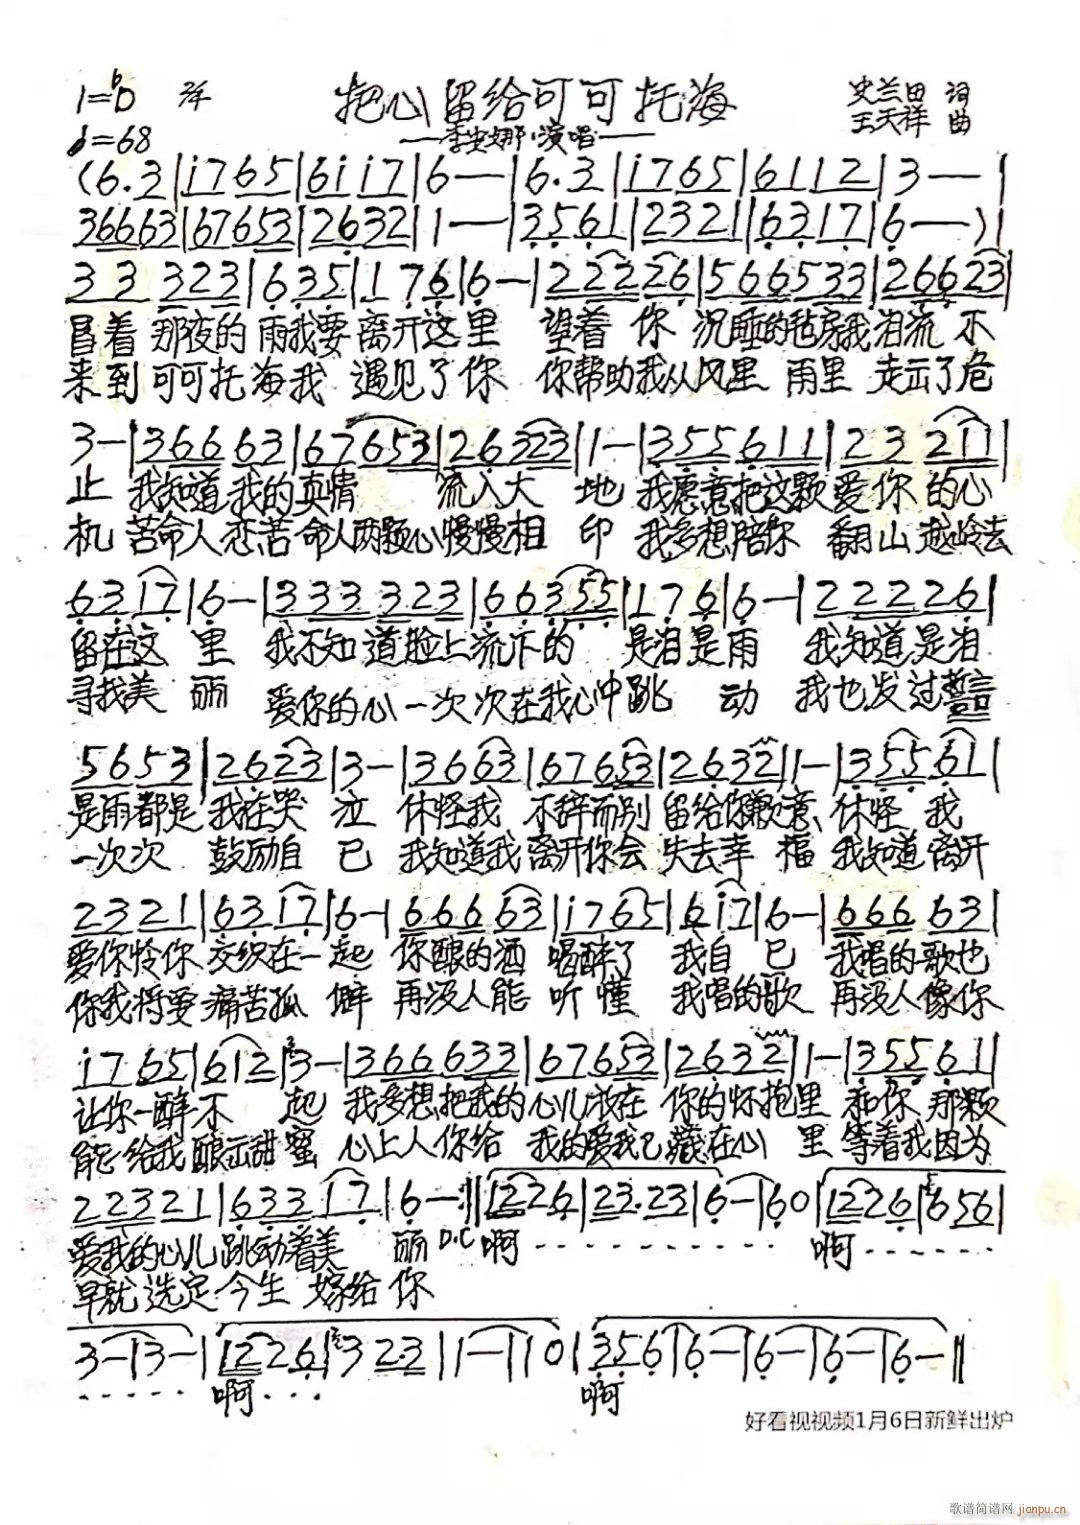 1=bD 2/4 把心留给可可托海 史兰田 词
♩=68 —李安娜·演唱— 王天祥 曲
(6.3|i765|6ii7|6—|6.3|i765|6112|3—|
36663|67653|2632|1—|3561|2321|6317|6—)|
33 323|635|176|6—|22226|566533|26623|
冒着 那夜的 雨我要 离开这里 望着 你 沉睡的毡房我泪流 不
来到可可托海我 遇见了你 你帮助我从风里 雨里 走云了危
3—|36663|67653|26323|1—|355611|23211|
止 我知道我的真情 流入大 地 我愿意把这颗爱你的心
机 苦命人恋苦命人两颗心慢慢相 印 我多想陪你 翻山越岭去
6317|6—|333323|66355|176|6—|222226|
留在这 里 我不知道脸上流下的 是泪是雨 我知道是泪
寻找美 丽 爱你的心一次次在我心中跳 动 我也发过誓言
5653|2623|3—|3663|67653|2632|1—|35561|
是雨都是 我在哭 泣 休怪我 不辞而别 留给你歉意 休怪 我
一次次 鼓励自 己 我知道我离开你会 失去幸 福 我知道离开
2321|6317|6—|66663|i765|6i7|6—|66663|
爱你怜你 交织在一起 你酿的酒 喝醉了 我自 己 我唱的歌也
你我将要痛苦孤 僻 再没人能 听懂 我唱的歌 再没人像你
i765|612|3—|366633|67653|2632|1—|35561|
让你一醉不 起 我多想把我的心儿放在 你的怀抱里 和你 那颗
能给我酿云甜蜜 心上人你给 我的爱我已藏在心 里等着我因为
22321|63317|6—:‖1226|23.23|6—|60|1226|656|
爱我的心儿跳动着美 丽 D.C 啊 - - - - - - - - - 啊 - - - - - -
早就选定今生 嫁给 你
3—|3—|1226|323|1—|10|356|6—|6—|6—|6—‖
- - - - - - 啊 - - - 啊
好看视视频1月6日新鲜出炉
歌谱简谱网
jianpu.cn